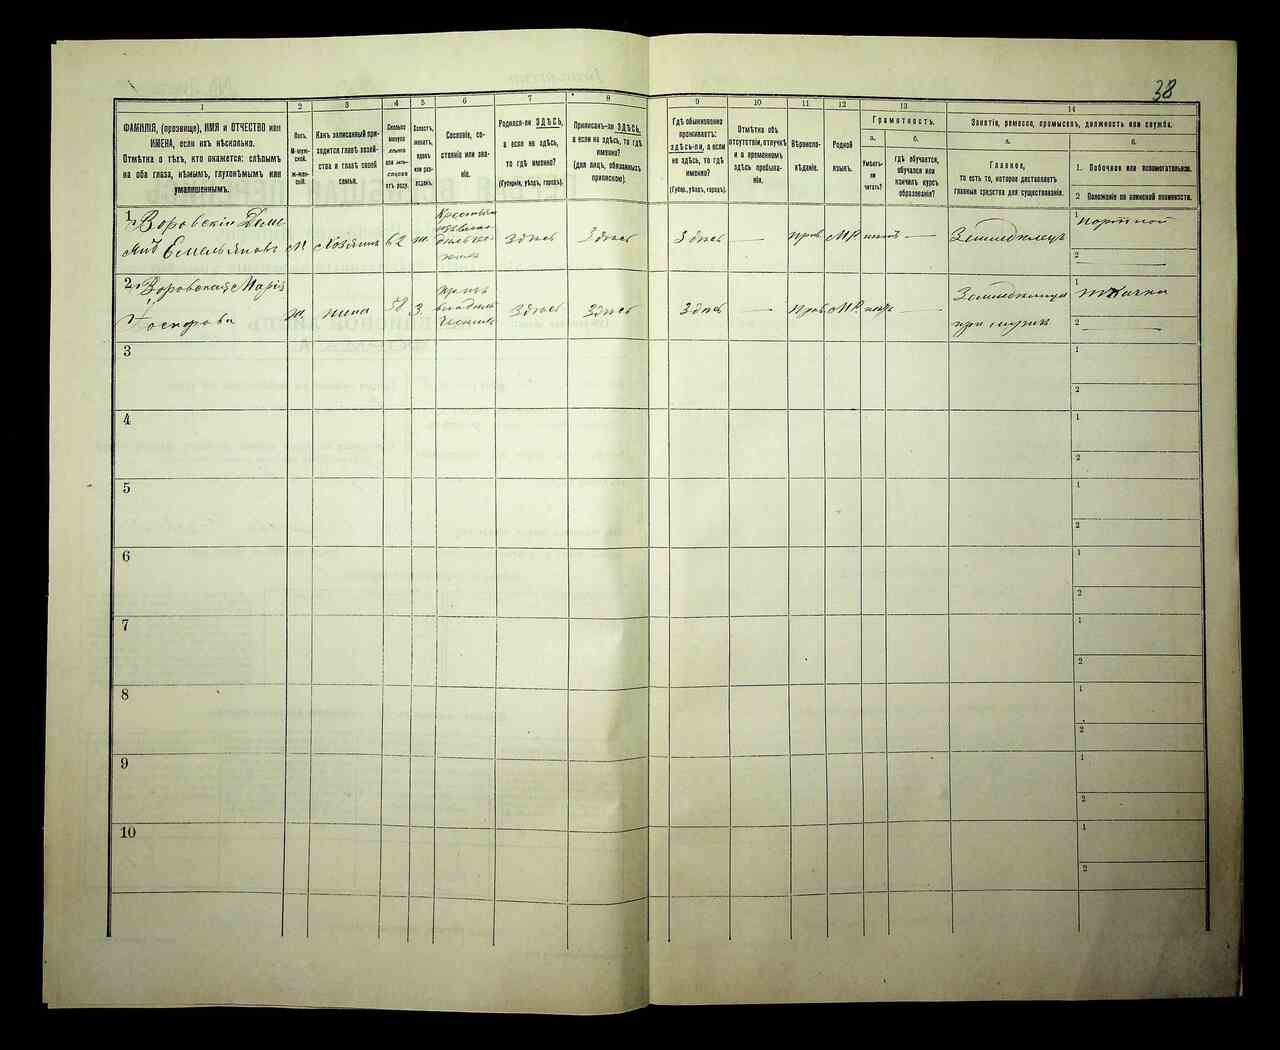 38
1
2
3
4
5
6
7
8
9
10
11
12
13
14
ФАМИЛІЯ, (прозвище), ИМЯ и ОТЧЕСТВО или
ИМЕНА, если ихъ нѣсколько.
Отмѣтка о тѣхъ, кто окажется: слѣпымъ
на оба глаза, нѣмымъ, глухонѣмымъ или
умалишеннымъ.
Полъ.
М-мужской.
Ж-женскій.
Какъ записанный при-
ходится главѣ хозяй-
ства и главѣ своей
семьи.
Сколько
минуло
лѣтъ
отъ роду.
Холостъ,
женатъ,
вдовъ
или раз-
веденъ.
Сословіе, со-
стояніе или зва-
ніе.
Родился-ли ЗДѢСЬ,
а если не здѣсь,
то гдѣ именно?
(Губернія, уѣздъ, городъ).
Приписанъ-ли ЗДѢСЬ,
а если не здѣсь, то гдѣ
именно?
(для лицъ, обязанныхъ
припискою).
Гдѣ обыкновенно
проживаетъ:
ЗДѢСЬ-ли, а если
не здѣсь, то гдѣ
именно?
(Губерн., уѣздъ, городъ).
Отмѣтка объ
отсутствіи, отлучкѣ
и о временномъ
здѣсь пребыва-
ніи.
Вѣроиспо-
вѣданіе.
Родной
языкъ.
Грамотность.
а.
Умѣетъ-
ли
читать?
б.
гдѣ обучается,
обучался или
кончилъ курсъ
образованія?
Занятіе, ремесло, промыселъ, должность или служба.
а.
Главное,
то есть то, которое доставляетъ
главныя средства для существованія.
б.
1. Побочное или вспомогательное.
2 Положеніе по воинской повинности.
1.
Воровскій
Емельяновъ
М
Хозяинъ
62
ж.
Здѣсь
Здѣсь
Здѣсь
—
прав
МР.
—
Земледѣлецъ
1
портной
2
2.
Воровская Марія
Іосифова
ж.
жена
58
З.
Здѣсь
Здѣсь
Здѣсь
—
прав
МР.
—
при мужѣ
1
ткачка
2
3
1
2
4
1
2
5
1
2
6
1
2
7
1
2
8
1
2
9
1
2
10
1
2